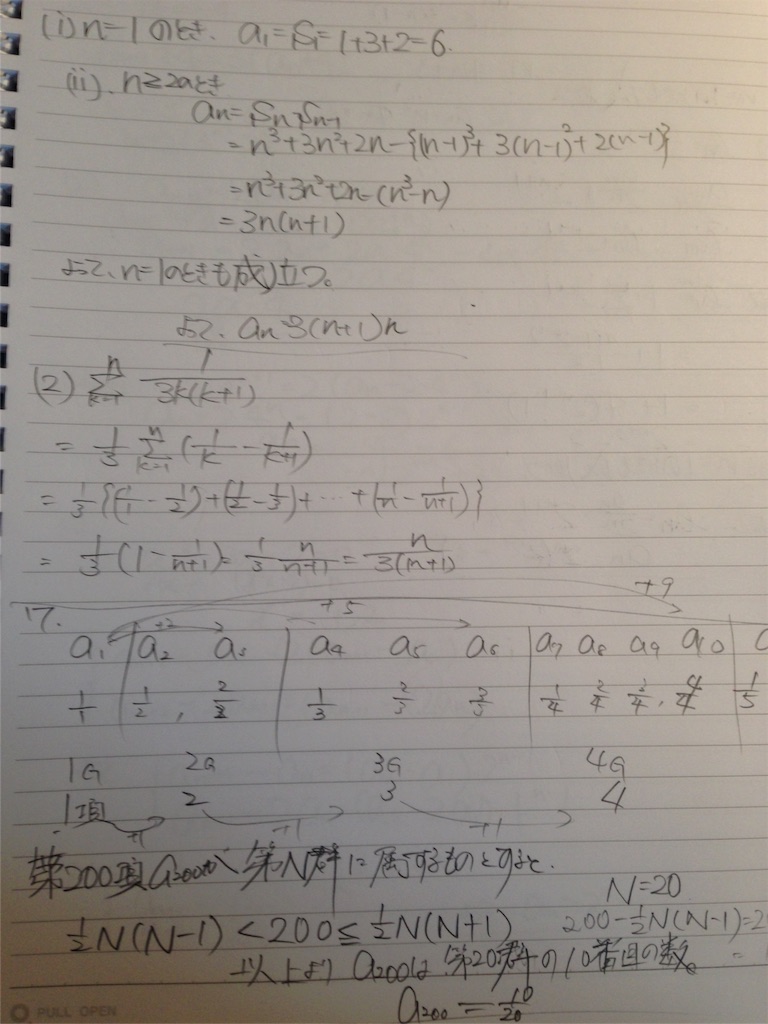 (i) n=1のとき、a₁=S₁=1+3+2=6.
(ii). n≧2のとき
an=Sn-Sn-1
=n³+3n²+2n-{(n-1)³+3(n-1)²+2(n-1)}
=n³+3n²+2n-(n³-n)
=3n(n+1)
よって、n=1のときも成り立つ。
よって、an=3(n+1)n
(2) Σ[k=1→n] 1/3k(k+1)
= 1/3 Σ[k=1→n] (1/k - 1/k+1)
= 1/3 {(1/1 - 1/2)+(1/2 - 1/3)+ … +(1/n - 1/n+1)}
= 1/3 (1 - 1/n+1) = 1/3 n/n+1 = n/3(n+1)
+9
17. +2 +5
a₁ | a₂ a₃ | a₄ a₅ a₆ | a₇ a₈ a₉ a₁₀ |
1/1 | 1/2 , 2/2 | 1/3 2/3 3/3 | 1/4 2/4 3/4, 4/4 | 1/5
1G 2G 3G 4G
1項 2 3 4
+1 +1 +1
第200項a₂₀₀が第N群に属するものとすると、
N=20
½N(N-1)<200≦½N(N+1) 200-½N(N-1)=2
以上よりa₂₀₀は第20群の10番目の数。 =
a₂₀₀=10/20
PULL OPEN